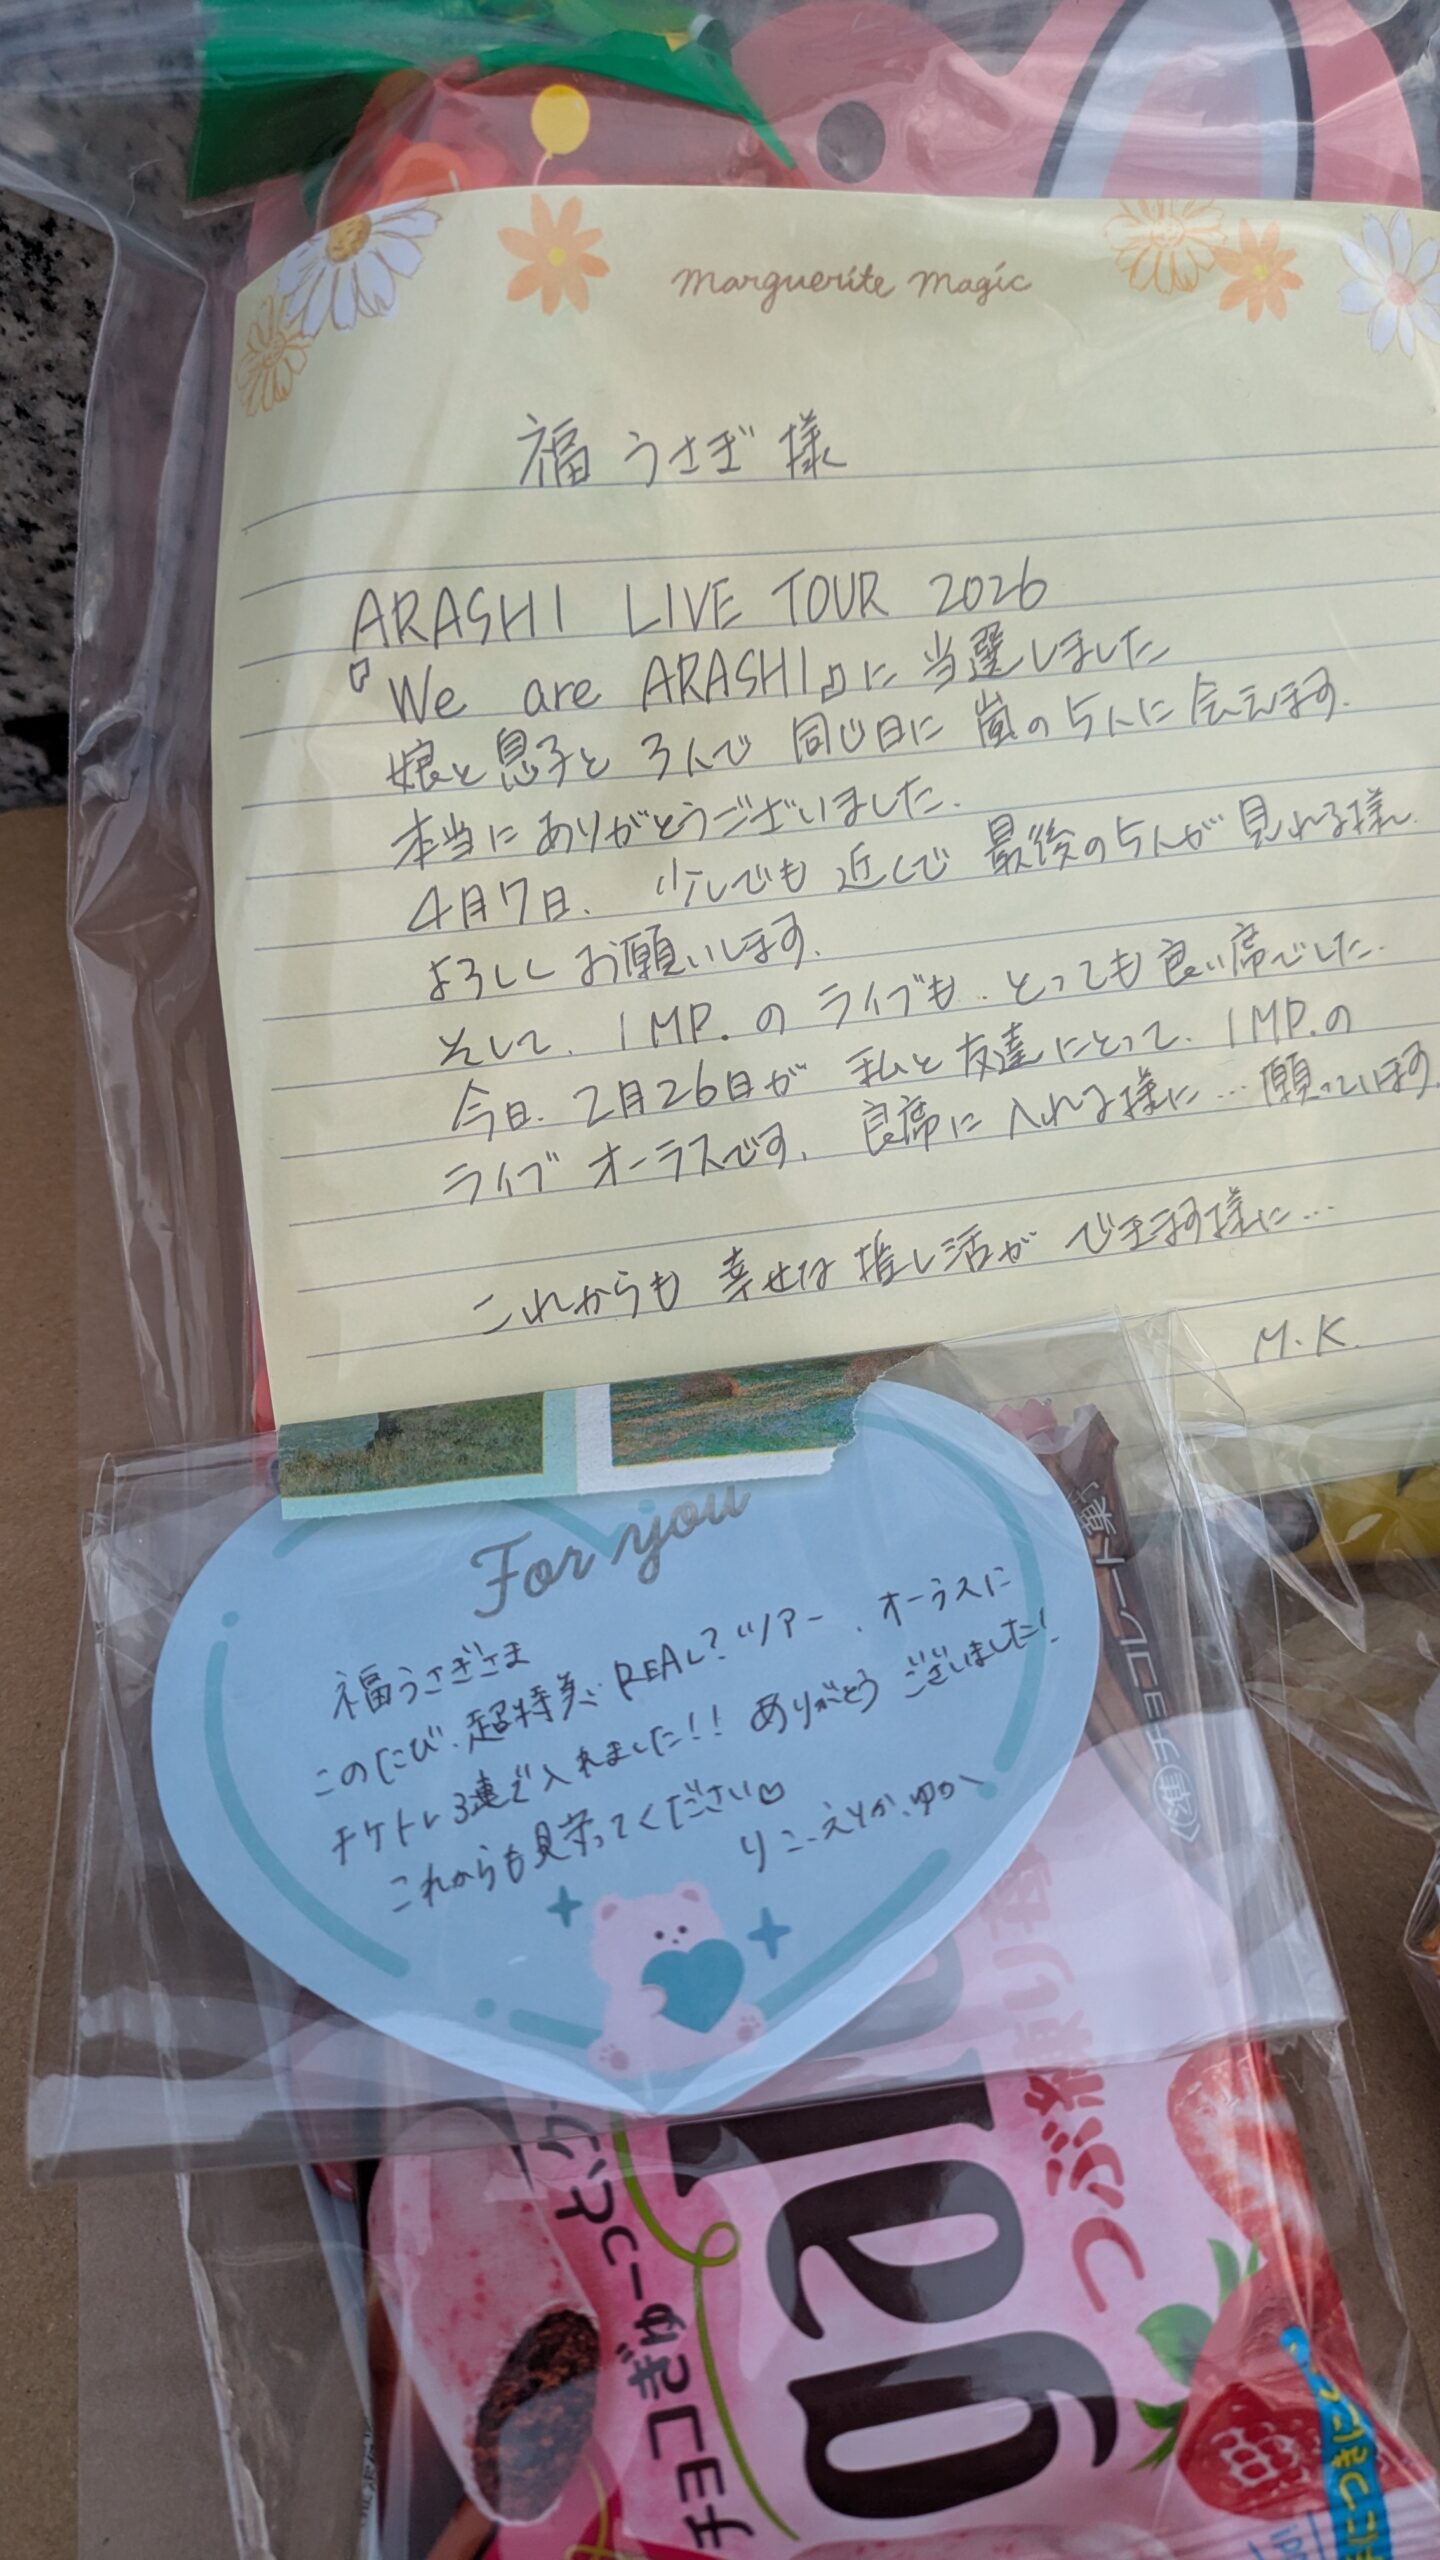 marguerite magic
福うさぎ様
ARASHI LIVE TOUR 2026
『We are ARASHI』に当選しました
娘と息子と3人で同じ日に嵐の5人に会えます.
本当にありがとうございました.
4月7日. 少しでも近くで最後の5人が見れる様
よろしくお願いします.
そして. IMP.のライブも..とっても良い席でした.
今日. 2月26日が私と友達にとって. IMP.の
ライブオーラスです. 良席に入れる様に…願っています.
これからも幸せな推し活ができます様に…
M.K.
For you
福うさぎさま
このたび、超特急 REAL?ツアー、オーラスに
チケトレ3連で入れました!! ありがとうございました!
これからも見守ってください♡
りこ、えりか、ゆの
㊤チョコレート菓子
つぶ練り苺
チョコぎゅーっと